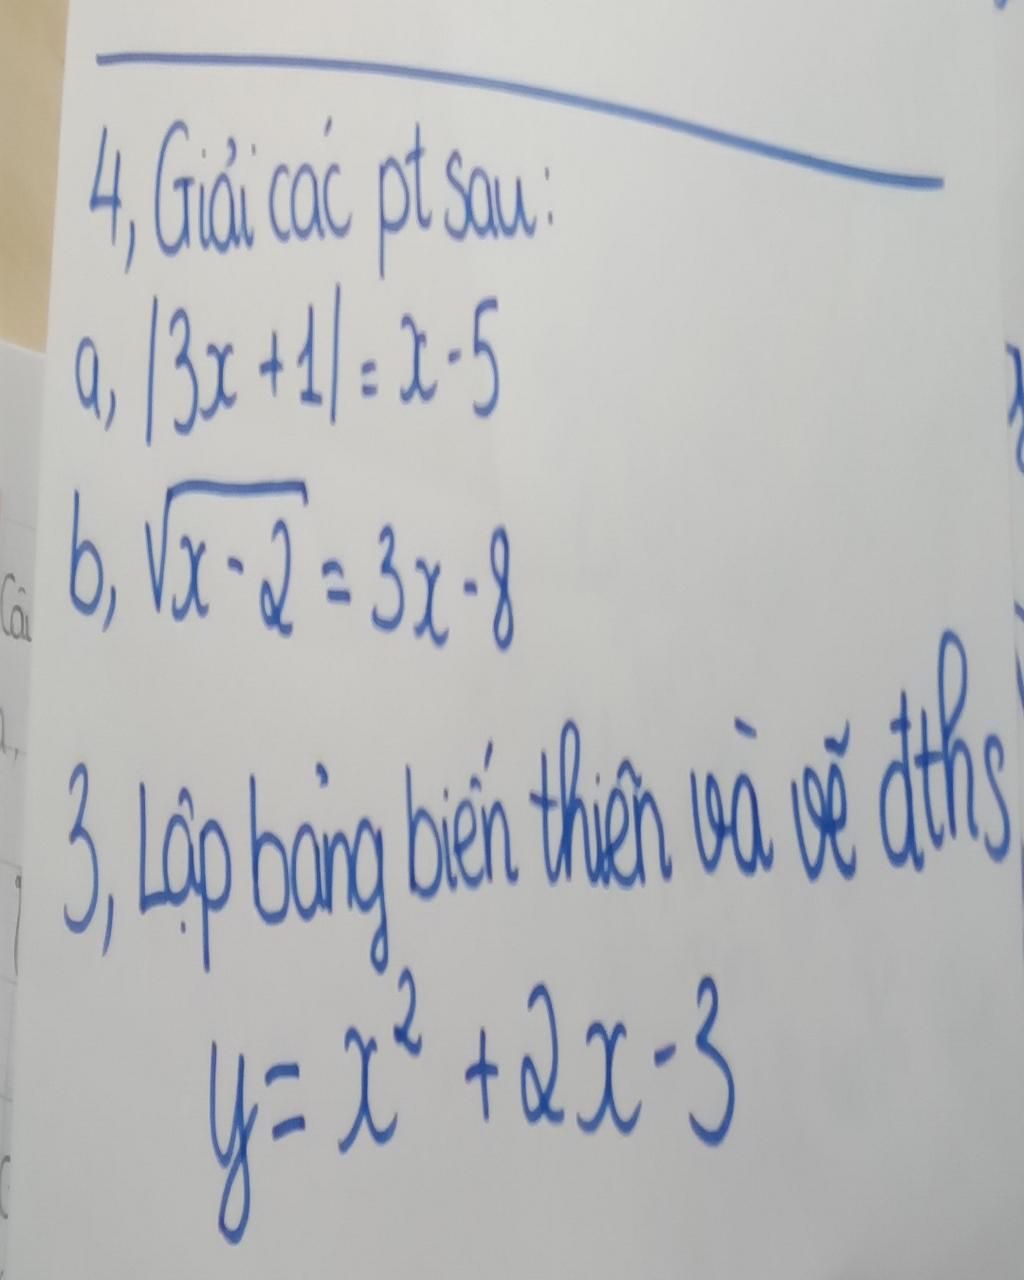 4, Giải các pt sau:
a, |3x + 1| = x - 5
b, √x - 2 = 3x - 8
3, Lập bảng biến thiên và vẽ đths
y = x² + 2x - 3